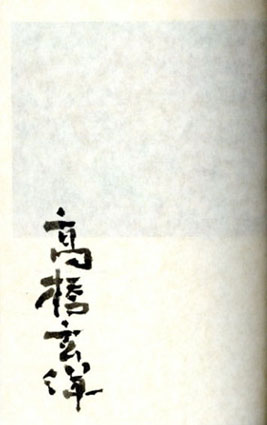 高橋玄洋